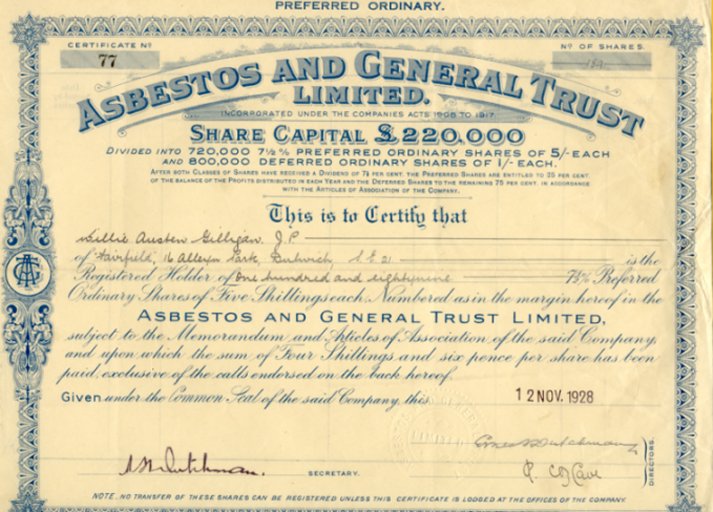 PREFERRED ORDINARY.
CERTIFICATE Nº
Nº OF SHARES.
77
189
ASBESTOS AND GENERAL TRUST
LIMITED.
INCORPORATED UNDER THE COMPANIES ACTS 1908 TO 1917
SHARE CAPITAL £220,000
DIVIDED INTO 720,000 7½% PREFERRED ORDINARY SHARES OF 5/- EACH
AND 800,000 DEFERRED ORDINARY SHARES OF 1/- EACH.
AFTER BOTH CLASSES OF SHARES HAVE RECEIVED A DIVIDEND OF 7½ PER CENT. THE PREFERRED SHARES ARE ENTITLED TO 25 PER CENT.
OF THE BALANCE OF THE PROFITS DISTRIBUTED IN EACH YEAR AND THE DEFERRED SHARES TO THE REMAINING 75 PER CENT. IN ACCORDANCE
WITH THE ARTICLES OF ASSOCIATION OF THE COMPANY.
This is to Certify that
Willie Austen Gilligan. J.P
of "Fairfield," 16 Alleyn Park, Dulwich, S.E 21 is the
Registered Holder of One hundred and eightynine 7½% Preferred
Ordinary Shares of Five Shillings each, Numbered as in the margin hereof in the
ASBESTOS AND GENERAL TRUST LIMITED,
subject to the Memorandum and Articles of Association of the said Company,
and upon which the sum of Four Shillings and six pence per share has been
paid, exclusive of the calls endorsed on the back hereof.
Given under the Common Seal of the said Company this 12 NOV. 1928
SECRETARY.
DIRECTORS.
NOTE. NO TRANSFER OF THESE SHARES CAN BE REGISTERED UNLESS THIS CERTIFICATE IS LODGED AT THE OFFICES OF THE COMPANY.